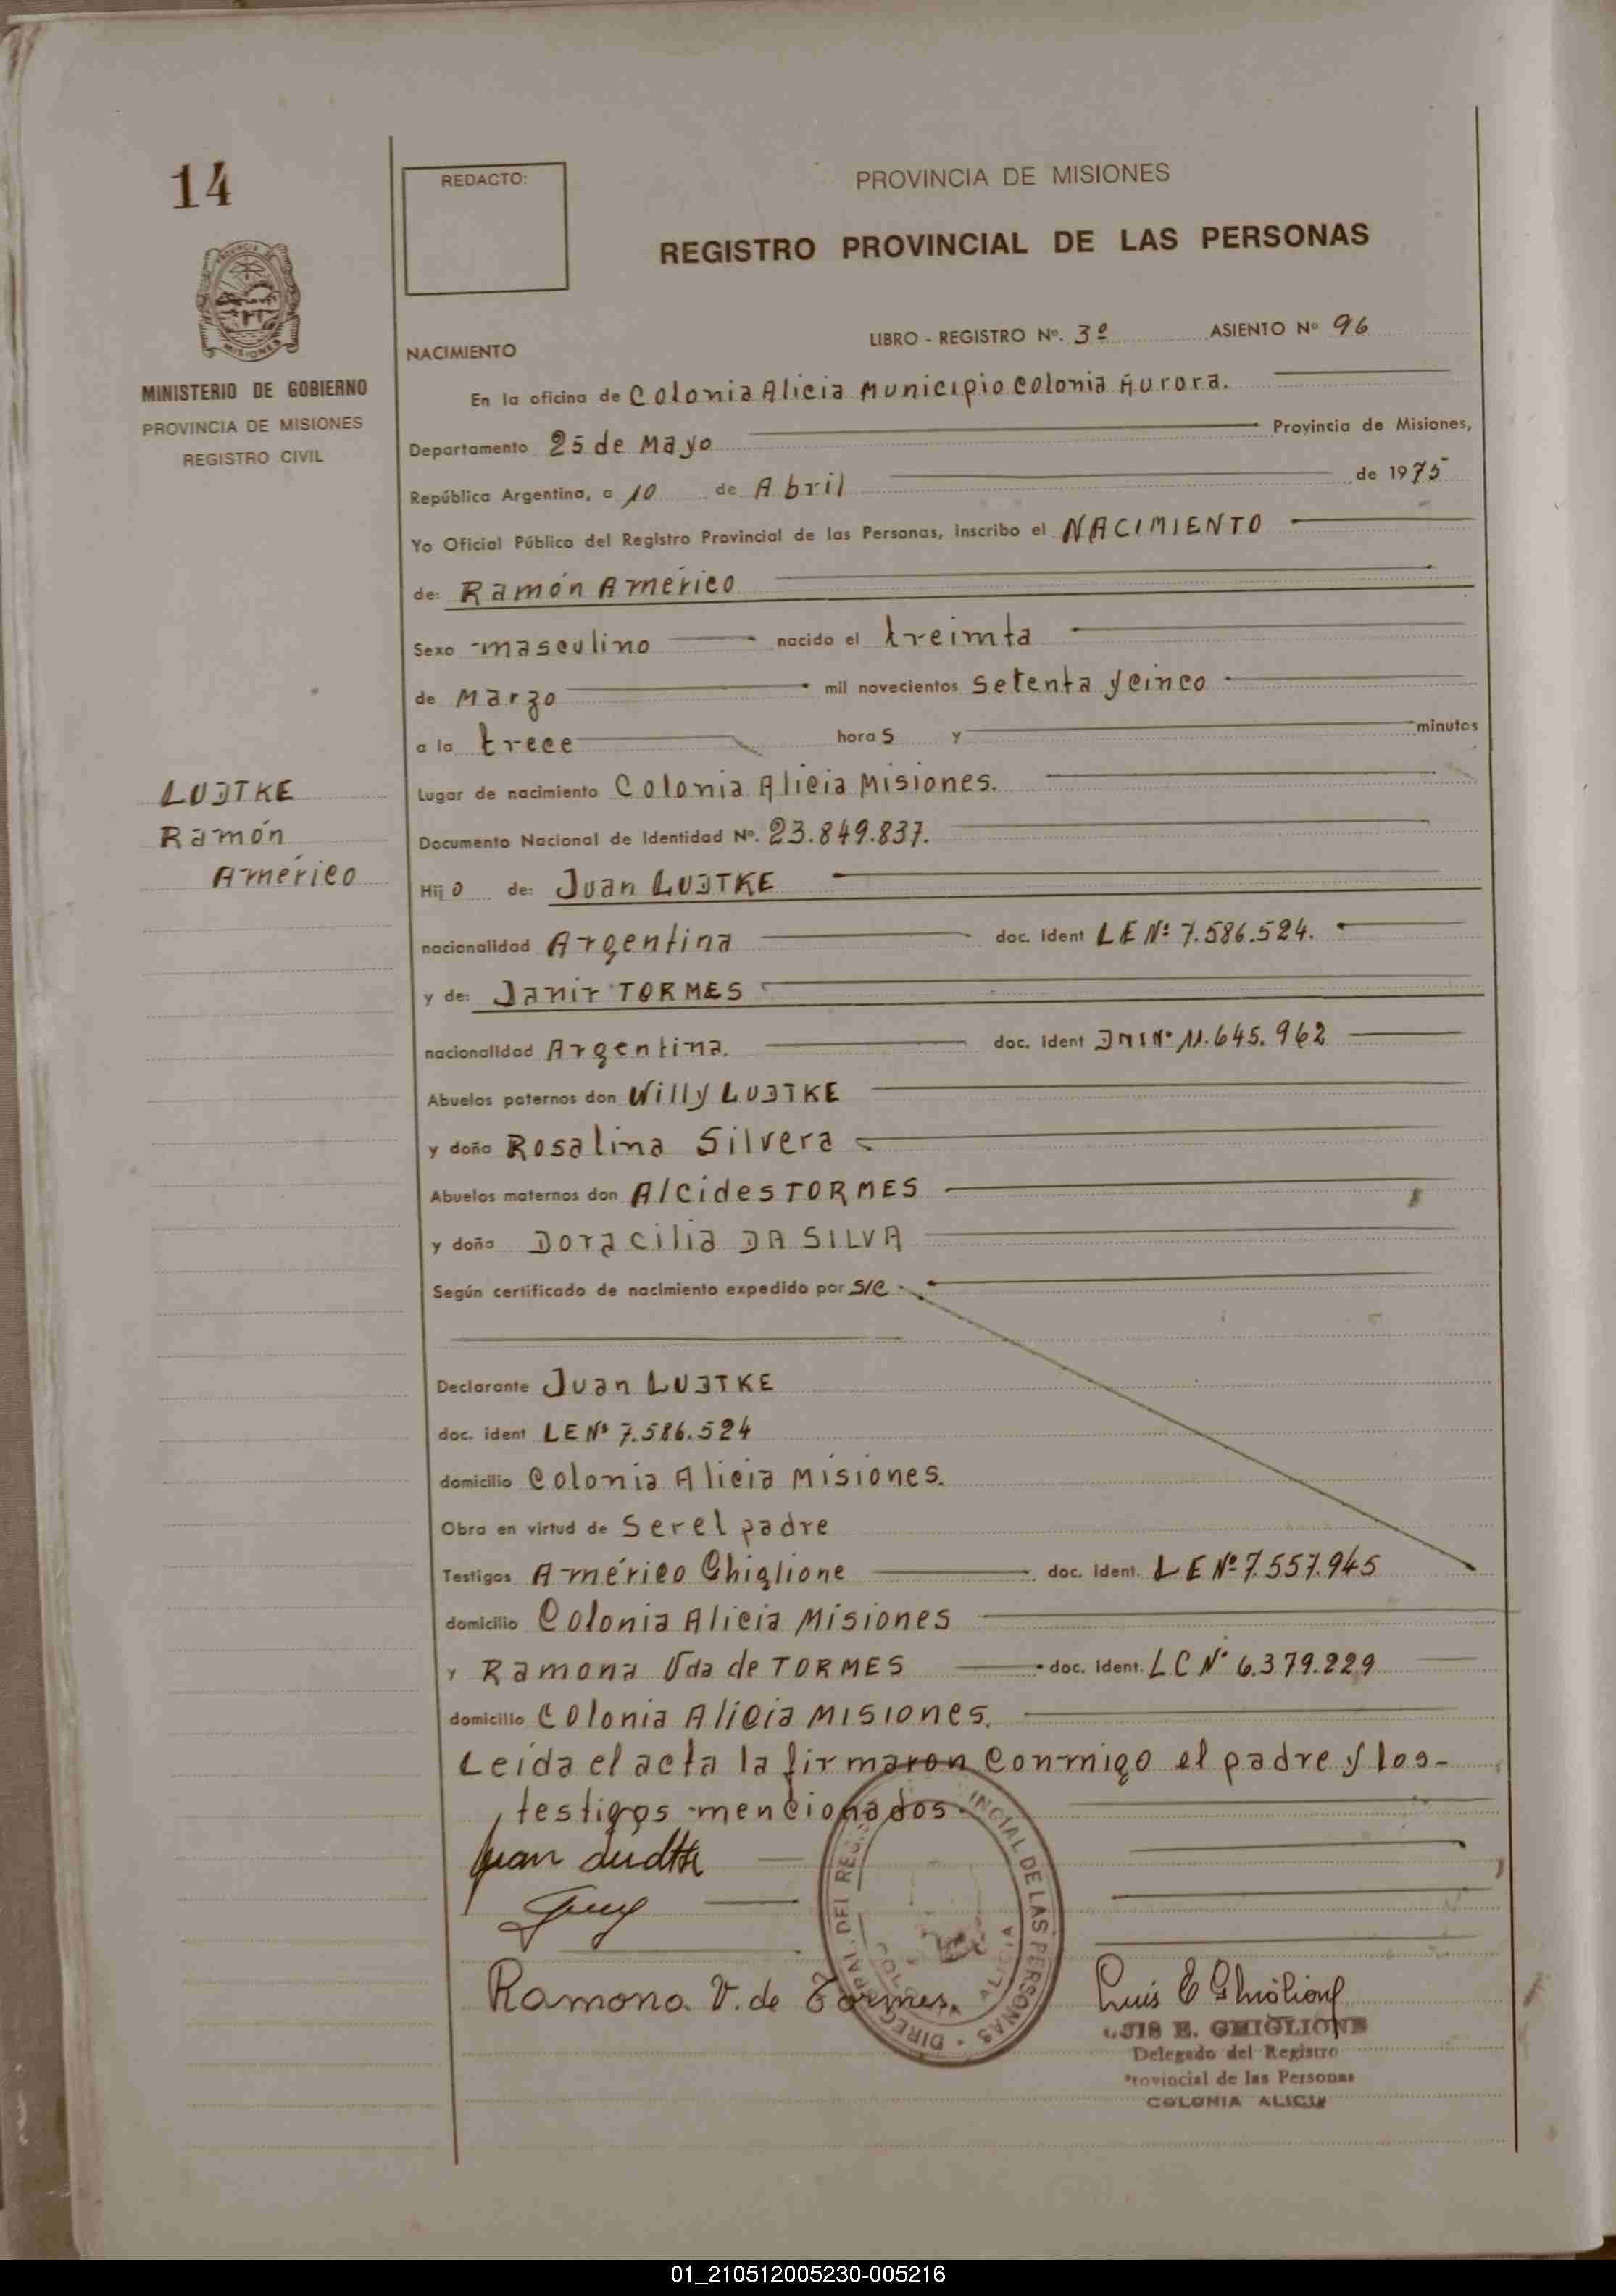 14
REDACTO:
PROVINCIA DE MISIONES
REGISTRO PROVINCIAL DE LAS PERSONAS
MISIONES
MINISTERIO DE GOBIERNO
PROVINCIA DE MISIONES
REGISTRO CIVIL
LIBRO - REGISTRO Nº. 3º ASIENTO Nº 96
NACIMIENTO
En la oficina de Colonia Alicia Municipio Colonia Aurora.
Departamento 25 de Mayo Provincia de Misiones,
República Argentina, a 10 de Abril de 1975
Yo Oficial Público del Registro Provincial de las Personas, inscribo el NACIMIENTO
de: Ramón Américo
Sexo masculino nacido el treimta
de Marzo mil novecientos setenta y cinco
a la trece horas y minutos
LUDTKE
Ramón
Américo
Lugar de nacimiento Colonia Alicia Misiones.
Documento Nacional de Identidad Nº. 23.849.837.
Hijo de: Juan LUDTKE
nacionalidad Argentina doc. ident LE Nº 7.586.524.
y de: Janir TORMES
nacionalidad Argentina. doc. ident DNI Nº 11.645.962
Abuelos paternos don Willy LUDTKE
y doña Rosalina Silvera
Abuelos maternos don Alcides TORMES
y doña Doracilia DA SILVA
Según certificado de nacimiento expedido por S/C
Declarante Juan LUDTKE
doc. ident LE Nº 7.586.524
domicilio Colonia Alicia Misiones.
Obra en virtud de Ser el padre
Testigos Américo Ghiglione doc. ident. LE Nº 7.557.945
domicilio Colonia Alicia Misiones
y Ramona Vda de TORMES doc. ident. LC Nº 6.379.229
domicilio Colonia Alicia Misiones.
Leida el acta la firmaron conmigo el padre y los-
testigos mencionados.
Juan Ludtke
Ramona V. de Tormes.
Luis E Ghiglione
LUIS E. GHIGLIONE
Delegado del Registro
Provincial de las Personas
COLONIA ALICIA
01_210512005230-005216